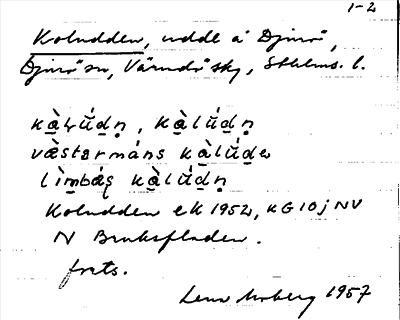 1-2
Koludden, udde å Djurö,
Djurö sn, Värmdö skg, Sthlms. l.
kàlúdn, kàlúdn
væstərmáns kàlúdə
lìmbáş kàlúdn
Koludden ek 1952, KG 10j NV
N Bruksfladen.
forts.
1957